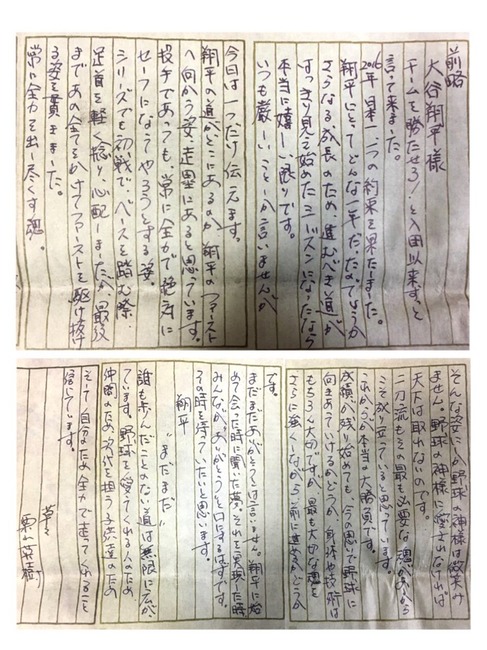 前略
大谷翔平様
チームを勝たせろ！と入団以来ずっと
言って来ました。
2016年日本一、一つの約束を果たしました。
翔平にとってどんな一年だったのでしょうか
さらなる成長のため、進むべき道が
すっきり見え始めたシーズンになったなら
本当に嬉しい限りです。
いつも厳しいことしか言いませんが
今日は一つだけ伝えます。
翔平の道がどこにあるのか 翔平のファースト
へ向かう姿、走塁にあると思っています。
投手であっても、常に全力で絶対に
セーフになってやろうとする姿。
シリーズでも初戦で、ベースを踏む際
足首を軽く捻り心配しましたが、最後
まであの全てをかけてファーストを駆け抜け
る姿を貫きました。
常に全力を出し尽くす魂。
そんな姿にしか野球の神様は微笑み
ません。野球の神様に愛されなければ
天下は取れないのです。
二刀流もその最も必要な魂があるから
こそ成り立っていると思っています。
これからが本当の大勝負です。
成績が残り始めても、今の思いで野球に
向きあっていけるかどうか、身体や技術は
もちろん大切ですが、最も大切な魂を
さらに強くしながら前に進めるかどうか
です。
まだまだありがとうとは言いません。翔平に始
めて会った時に聞いた夢。それを実現した時
みんながありがとうと口にするはずです。
その時を待っていたいと思います。
翔平
“まだまだ”
誰も歩んだことのない道は無限に広が
ています。野球を愛してくれる人のため
仲間のため、次代を担う子供達のため
そして自分のため全力で走ってくれることを
信じています。
草々
栗山英樹